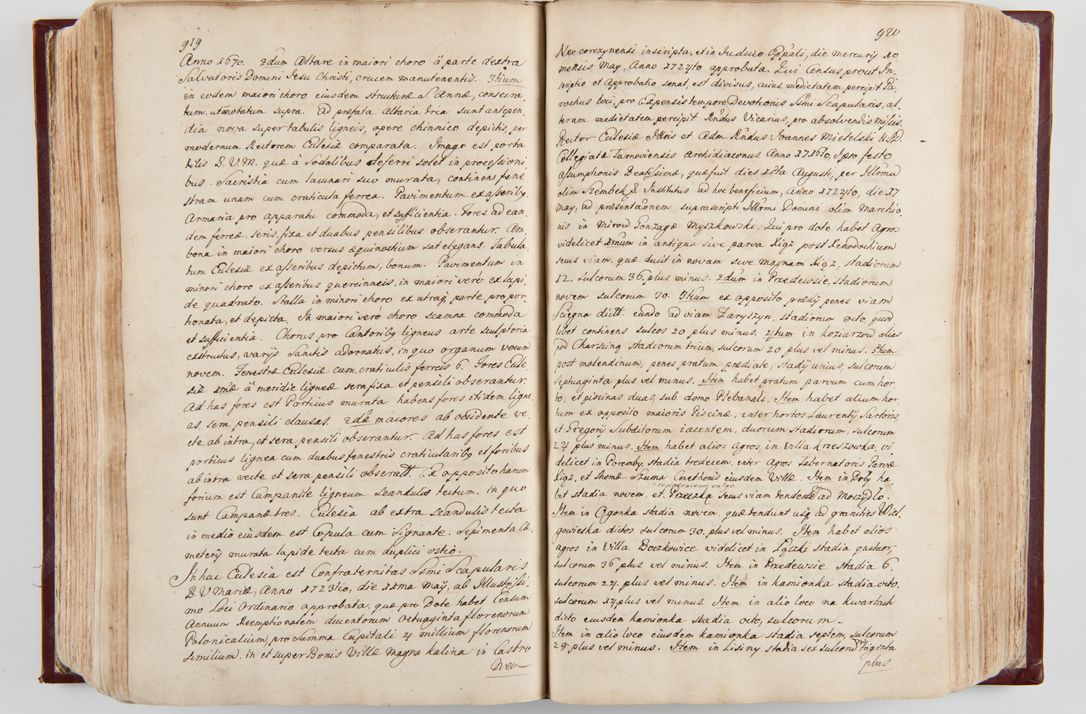 919
Anno 1670. 2dum Altare in maiori choro à parte dextra
Salvatoris Domini Jesu Christi, crucem manutenentis. 3tium
in eodem maiori choro eiusdem structuræ S. Annæ, consecra
tum, ut annotatum supra. Ad præfata Altaria tria sunt antepen,
dia nova super tabulis ligneis, opere chinnico depictis, per
modernum Rectorem Ecclesiæ comparata. Imago est porta
tilis B.V.M. quæ à Sodalibus deferri solet in processioni
bus. Sacristia cum lacunari suo murata, continens fene
stram unam cum craticula ferrea. Pavimentum ex asseribg
Armaria pro apparatu commoda, et sufficientia. Fores ad ean,
dem ferreæ seris, fixa et duabus pensilibus obserantur. Am,
bona in maiori choro versus æquinoctium sat elegans. Tabula
tum Ecclesiæ ex asseribus depictum, bonum. Pavimentum in
minori choro ex asseribus quercinneis, in maiori verò ex lapi,
de quadrato. Stalla in minori choro ex utraq parte pro por,
tionata, et depicta. In maiori vero choro scamna commoda
et sufficientia. Chorus pro Cantoribg ligneus arte sculptoria
exstructus, varijs Sanctis adornatus, in quo organum vocum
novem. Fenestræ Ecclesiæ cum craticulis ferreis 6. Fores Eccle,
siæ 1mæ à meridie ligneæ sera fixa et pensili obserantur.
Ad has fores est Porticus murata habens fores itidem ligne,
as sera pensili clausas. 2dæ maiores ab occidente ve,
cte ab intra, et sera pensili obserantur. Ad has fores est
porticus lignea cum duabus fenestris craticularibg et foribus
ab intra vecte et sera pensili obseratt. Ex opposito harum
forium est Campanile ligneum Scandulis tectum, in quo
sunt Campanæ tres. Ecclesia ab extra Scandulis tecta
in medio eiusdem est Cupula cum signante. Sepimenta Cæ,
meterij murata lapide tecta cum duplici ostio.
In hac Ecclesia est Confraternitas Ssmi Scapularis
B.V. Mariæ, Anno 1723tio, die 22ma Maij, ab Illustrissi,
mo Loci Ordinario approbata, quæ pro Dote habet Censum
Annuum Reemptionalem ducentorum octuaginta florenorum
Polonicalium, pro summa Capitali 4 millium florenorum
similium, in et super Bonis Villæ magna Kalina in Castro
Neo
920
Neo corczynensi inscripta, et in Judicio Eppali, die mercurij 20
mensis May, Anno 1724to approbata. Qui Census, prout In,
scriptio et Approbatio sonat, est divisus, cuius medietatem percipit Pa,
rochus loci, pro Expensis tempore Devotionis Ssmi Scapularis, al,
teram medietatem percipit Rndus Vicarius pro absolvendis Missis.
Rector Ecclesiæ Illris et Adm. Rndus Joannes Mietelski
Collegiatæ Tarnoviensis Archidiaconus. Anno 1726to, Ipso festo
Assumptionis Beatissimæ, quæ fuit dies 15ta Augusti, per Illrmu
olim Szembek, Institutus ad hoc beneficium, Anno 1724to, die 17
May, ad præsentaonem suprascripti Illrmi Domini olim Marchio,
nis in Mirow Gonzaga Myszkowski. Qui pro dote habet Agros
videlicet 1mum in antiqua sive parva Xięż post Xchodochium
seus viam, quæ ducit in novam sive magnam Xięż, stadiorum
12. sulcorum 36, plus minus. 2dum in Przedewsie, stadiorum
novem sulcorum 30. 3tium ex opposito prædij penes viam
Sciegno dictt. eundo ad viam Zaryszyn, stadiorum octo, quod
libet continens sulcos 20 plus minus. 4tum in Koziarzow alias
pod Charsing stadiorum trium, sulcorum 20 plus vel minus. Item
post molendinum, penes pratum prædiale, stadij unius, sulcorum
septuaginta plus vel minus. Item habet pratum parvum cum hor
to, et piscinas duas, sub domo Plebanali. Item habet alium hor,
tum ex opposito maioris Piscinæ, inter hortos Laurentij Sartoris,
et Gregorij Subditorum iacentem, duorum stadiorum, sulcorum
24 plus minus. Item habet alios Agros, in Villa Krzeszowka, vi
delicet in Poremby, stadia tredecem, inter Agros Tabernatoris Parvæ
Xięż, et Thomæ Szuma Cmethonis eiusdem Villæ. Item in Doły ha,
bet stadia novem, et Przeczka seus viam tendente ad Moczydło.
Item in Ogonka stadia novem, quæ tendunt usq ad granities Wiel,
gowieska dictos sulcorum 30, plus vel minus. Item habet alios
agros in Villa Boczkowice videlicet in Łązki stadia quatuor,
sulcorum 36 plus vel minus. Item in Przedewsie stadia 6,
sulcorum 24 plus vel minus. Item in Kamionka stadia octo,
sulcorum 24 plus vel minus. Item in alio loco na Kwartach
dicto eiusdem Kamionka stadia octo, sulcorum
Item in alio loco eiusdem Kamionka stadia septem, sulcorum
28 plus vel minus. Item in Lisiny stadia sex sulcorum triginta
plus